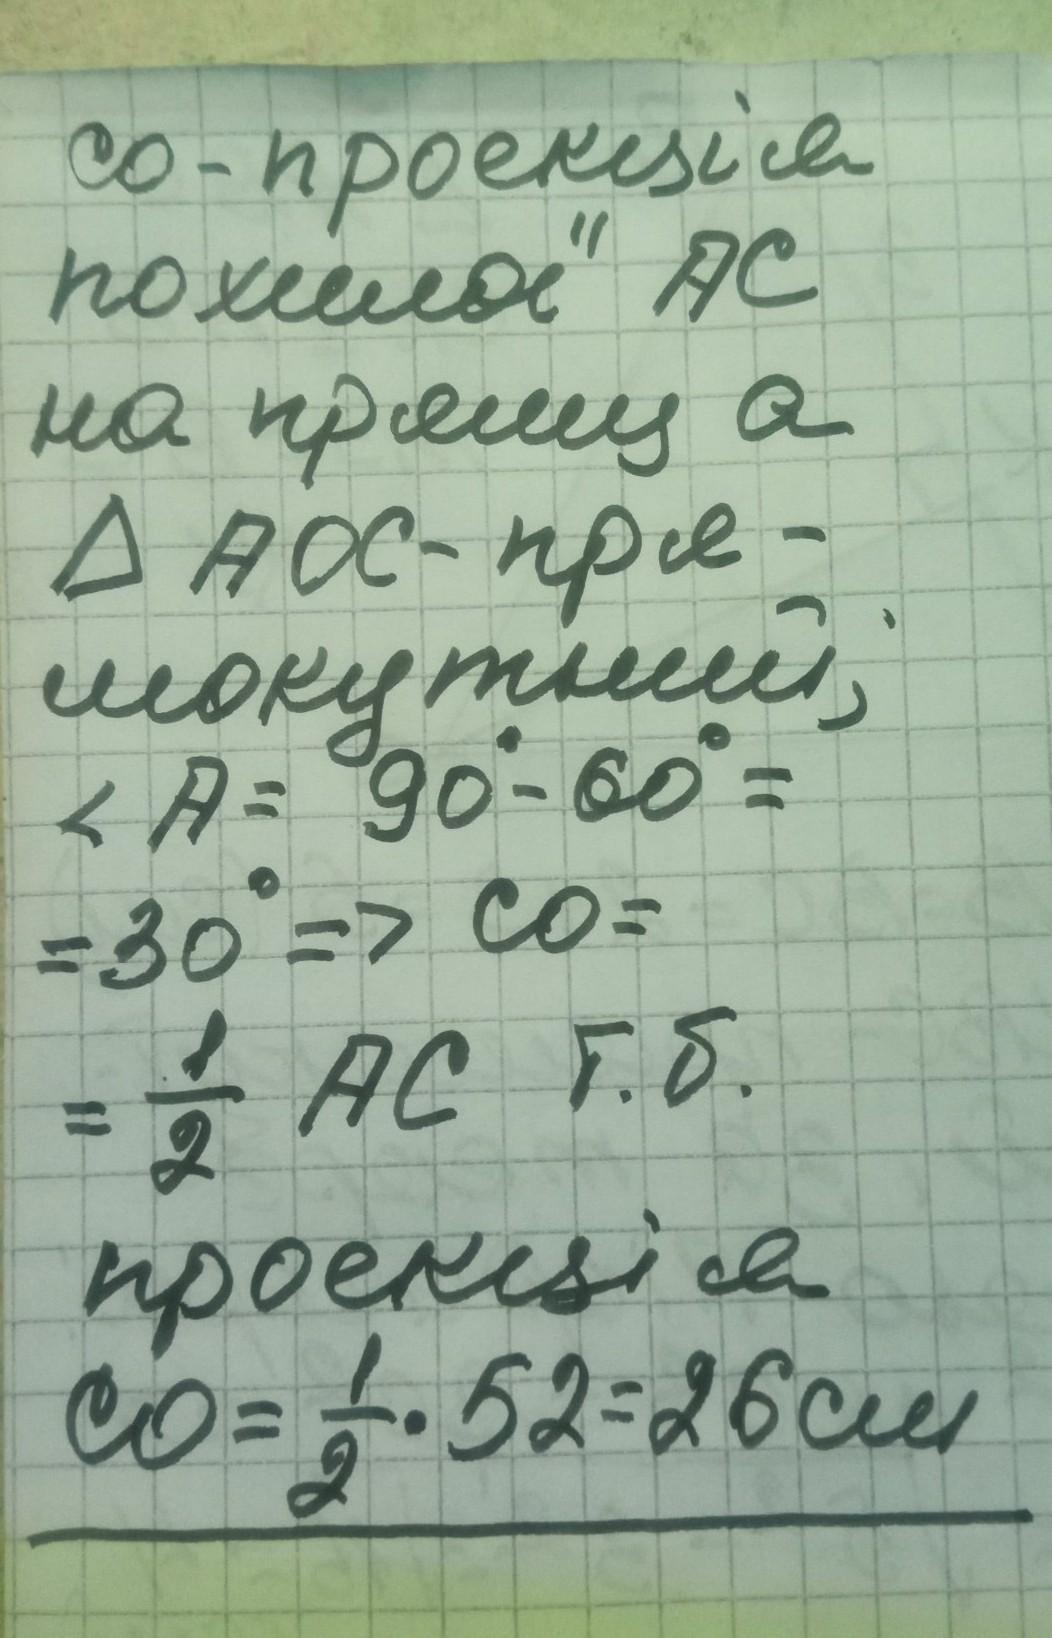 CO-проекція
похилої AC
на пряму a
Δ AOC- пря-
мокутний;
< A = 90°- 60° =
= 30° => CO =
= 1/2 AC т.б.
проекція
CO = 1/2 · 52 = 26 см